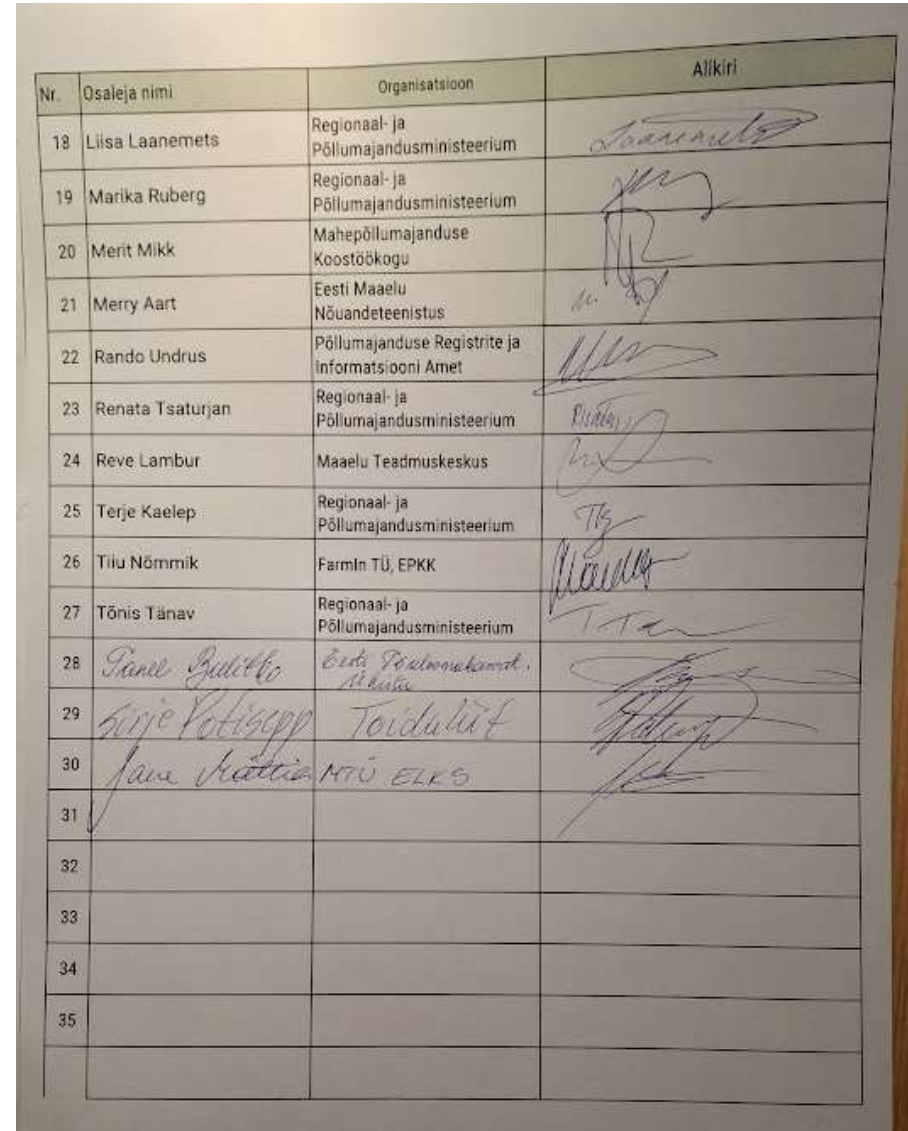 Nr. Osaleja nimi Organisatsioon Allkiri
18 Liisa Laanemets Regionaal- ja
Põllumajandusministeerium Laanemets
19 Marika Ruberg Regionaal- ja
Põllumajandusministeerium
20 Merit Mikk Mahepõllumajanduse
Koostöökogu
21 Merry Aart Eesti Maaelu
Nõuandeteenistus
22 Rando Undrus Põllumajanduse Registrite ja
Informatsiooni Amet
23 Renata Tsaturjan Regionaal- ja
Põllumajandusministeerium
24 Reve Lambur Maaelu Teadmuskeskus
25 Terje Kaelep Regionaal- ja
Põllumajandusministeerium
26 Tiiu Nõmmik FarmIn TÜ, EPKK
27 Tõnis Tänav Regionaal- ja
Põllumajandusministeerium
28 Eesti
29 Sirje Potisepp Toiduliit
30 Jane MTÜ ELKS
31
32
33
34
35